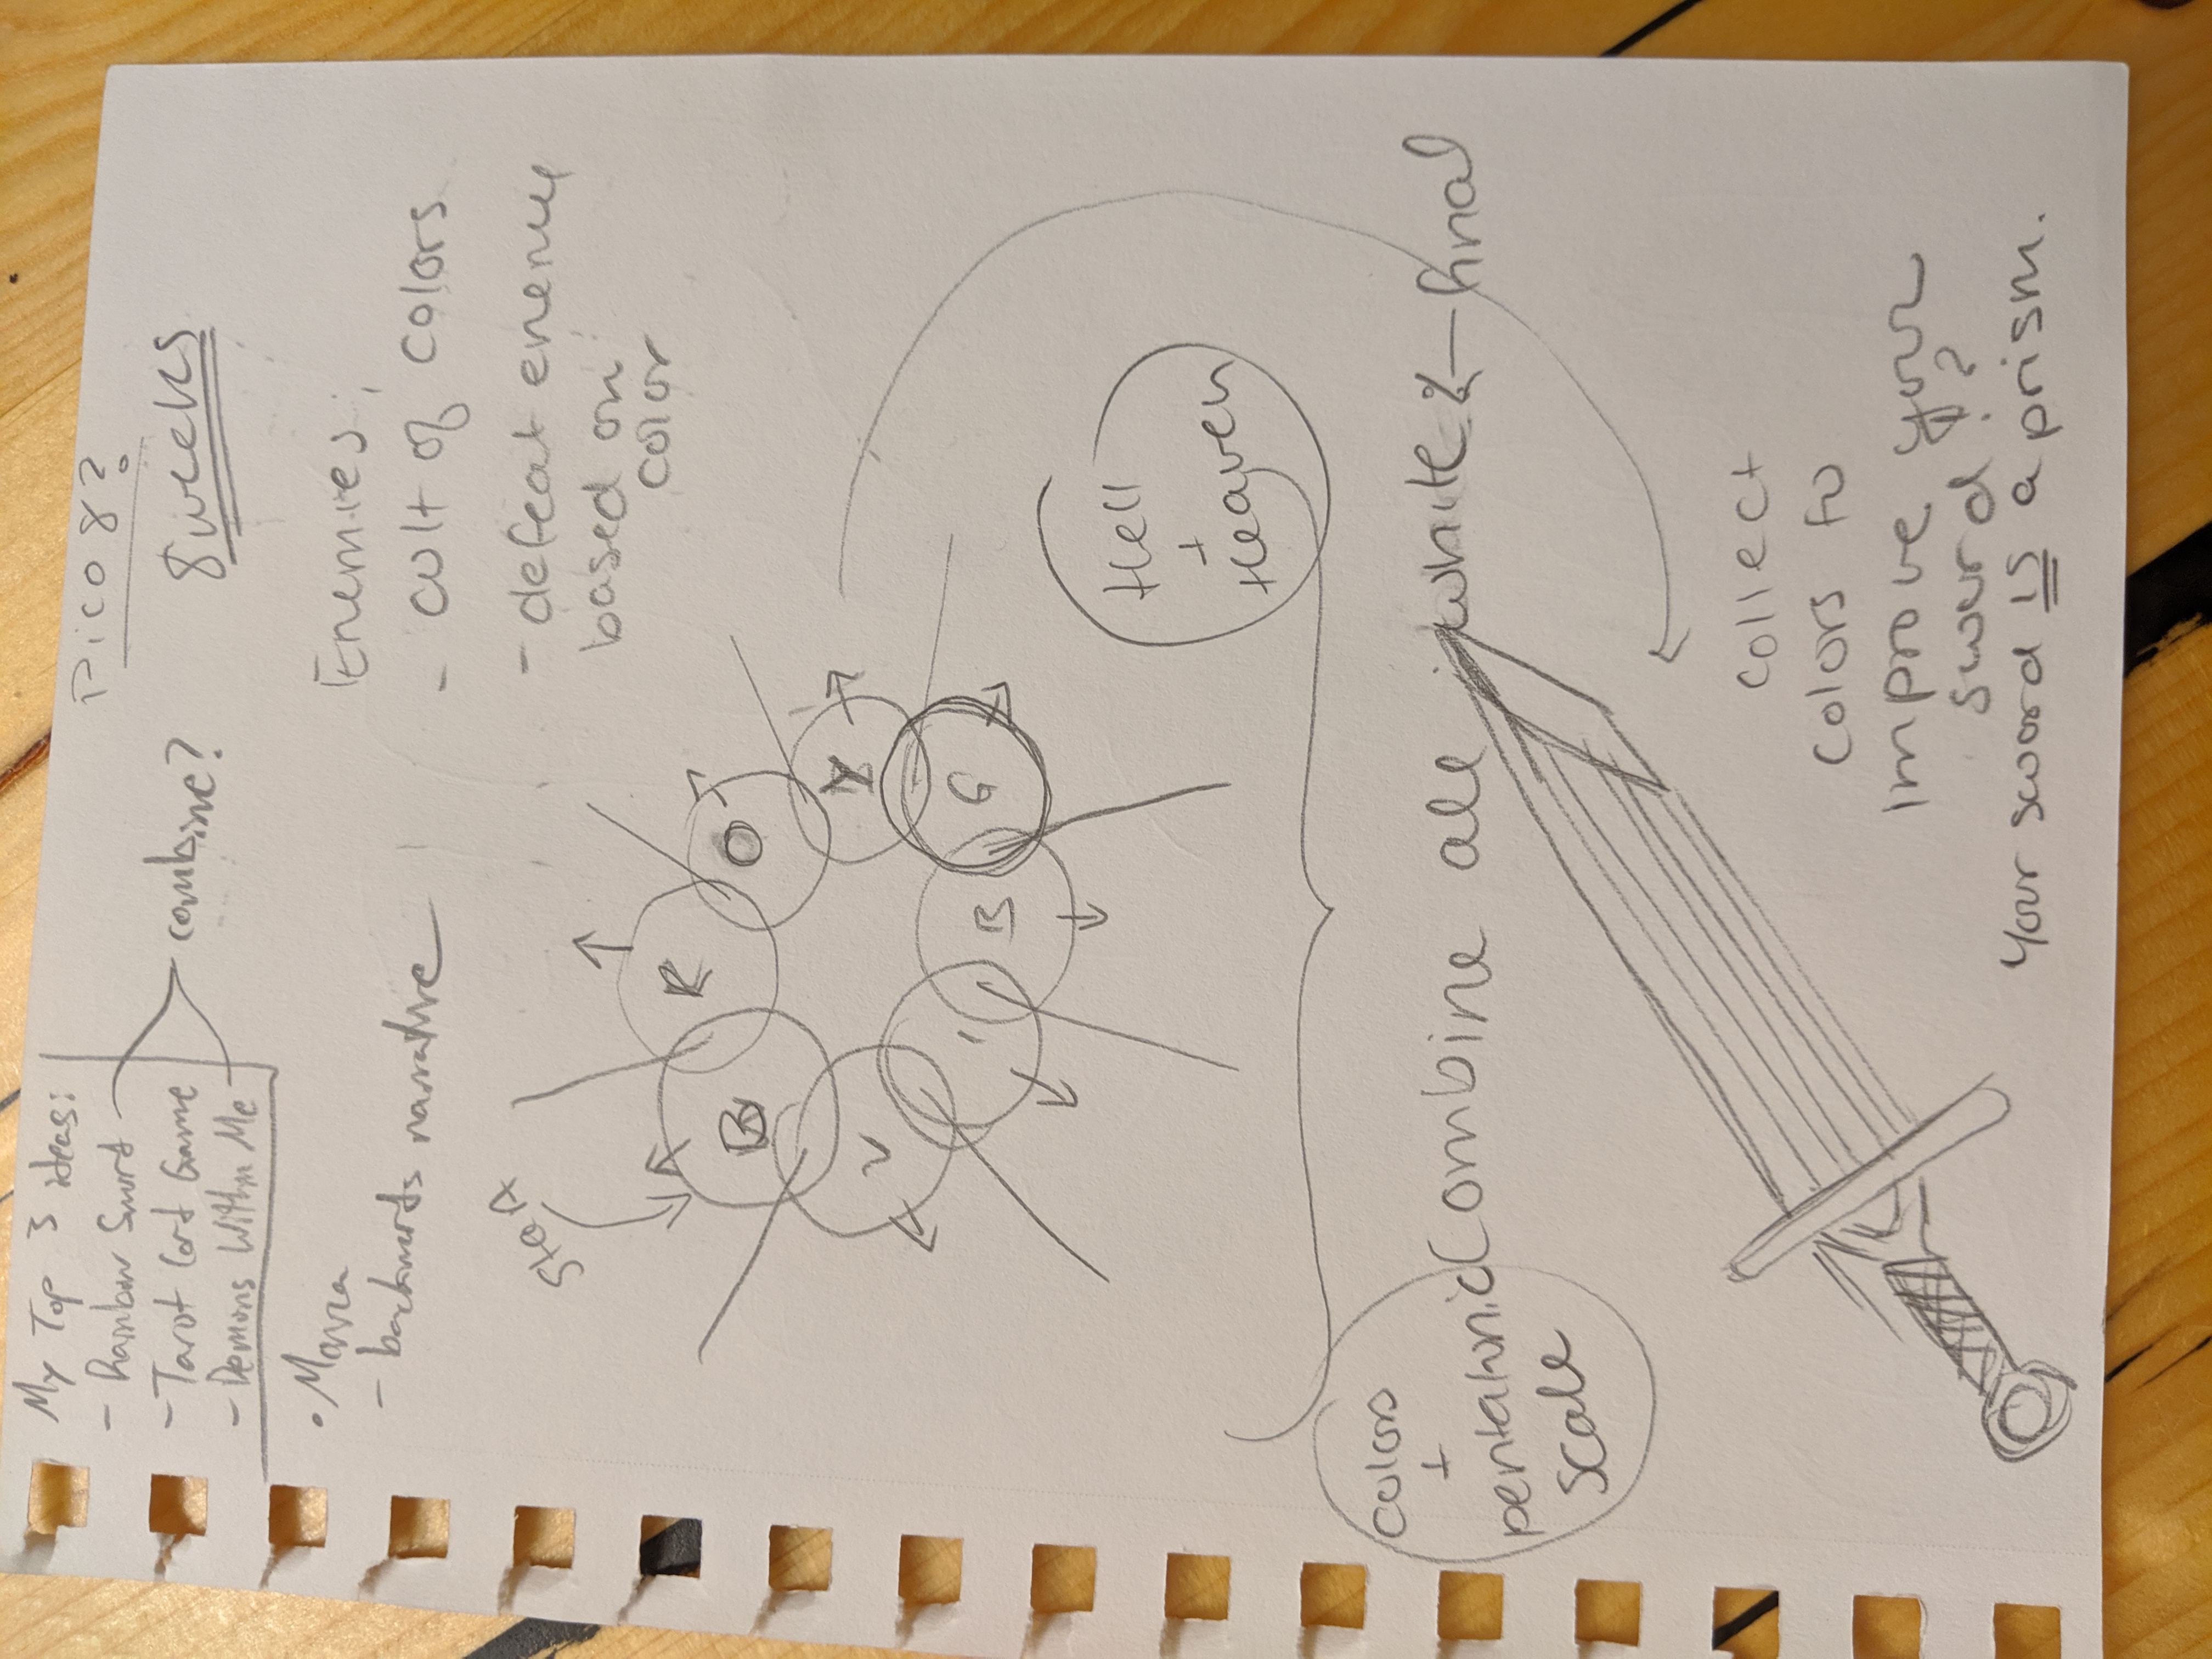 My Top 3 ideas:
- Rainbow Sword
- Tarot Card Game
- Demons Within Me
combine?
Pico 8?
8 weeks
- backwards narrative
Enemies:
- cult of colors
- defeat enemy
based on
color
Start
R
O
Y
G
B
I
V
Hell
+
Heaven
colors
+
pentatonic
scale
Combine all : white ← final
collect
colors to
improve your
sword!?
Your sword IS a prism.